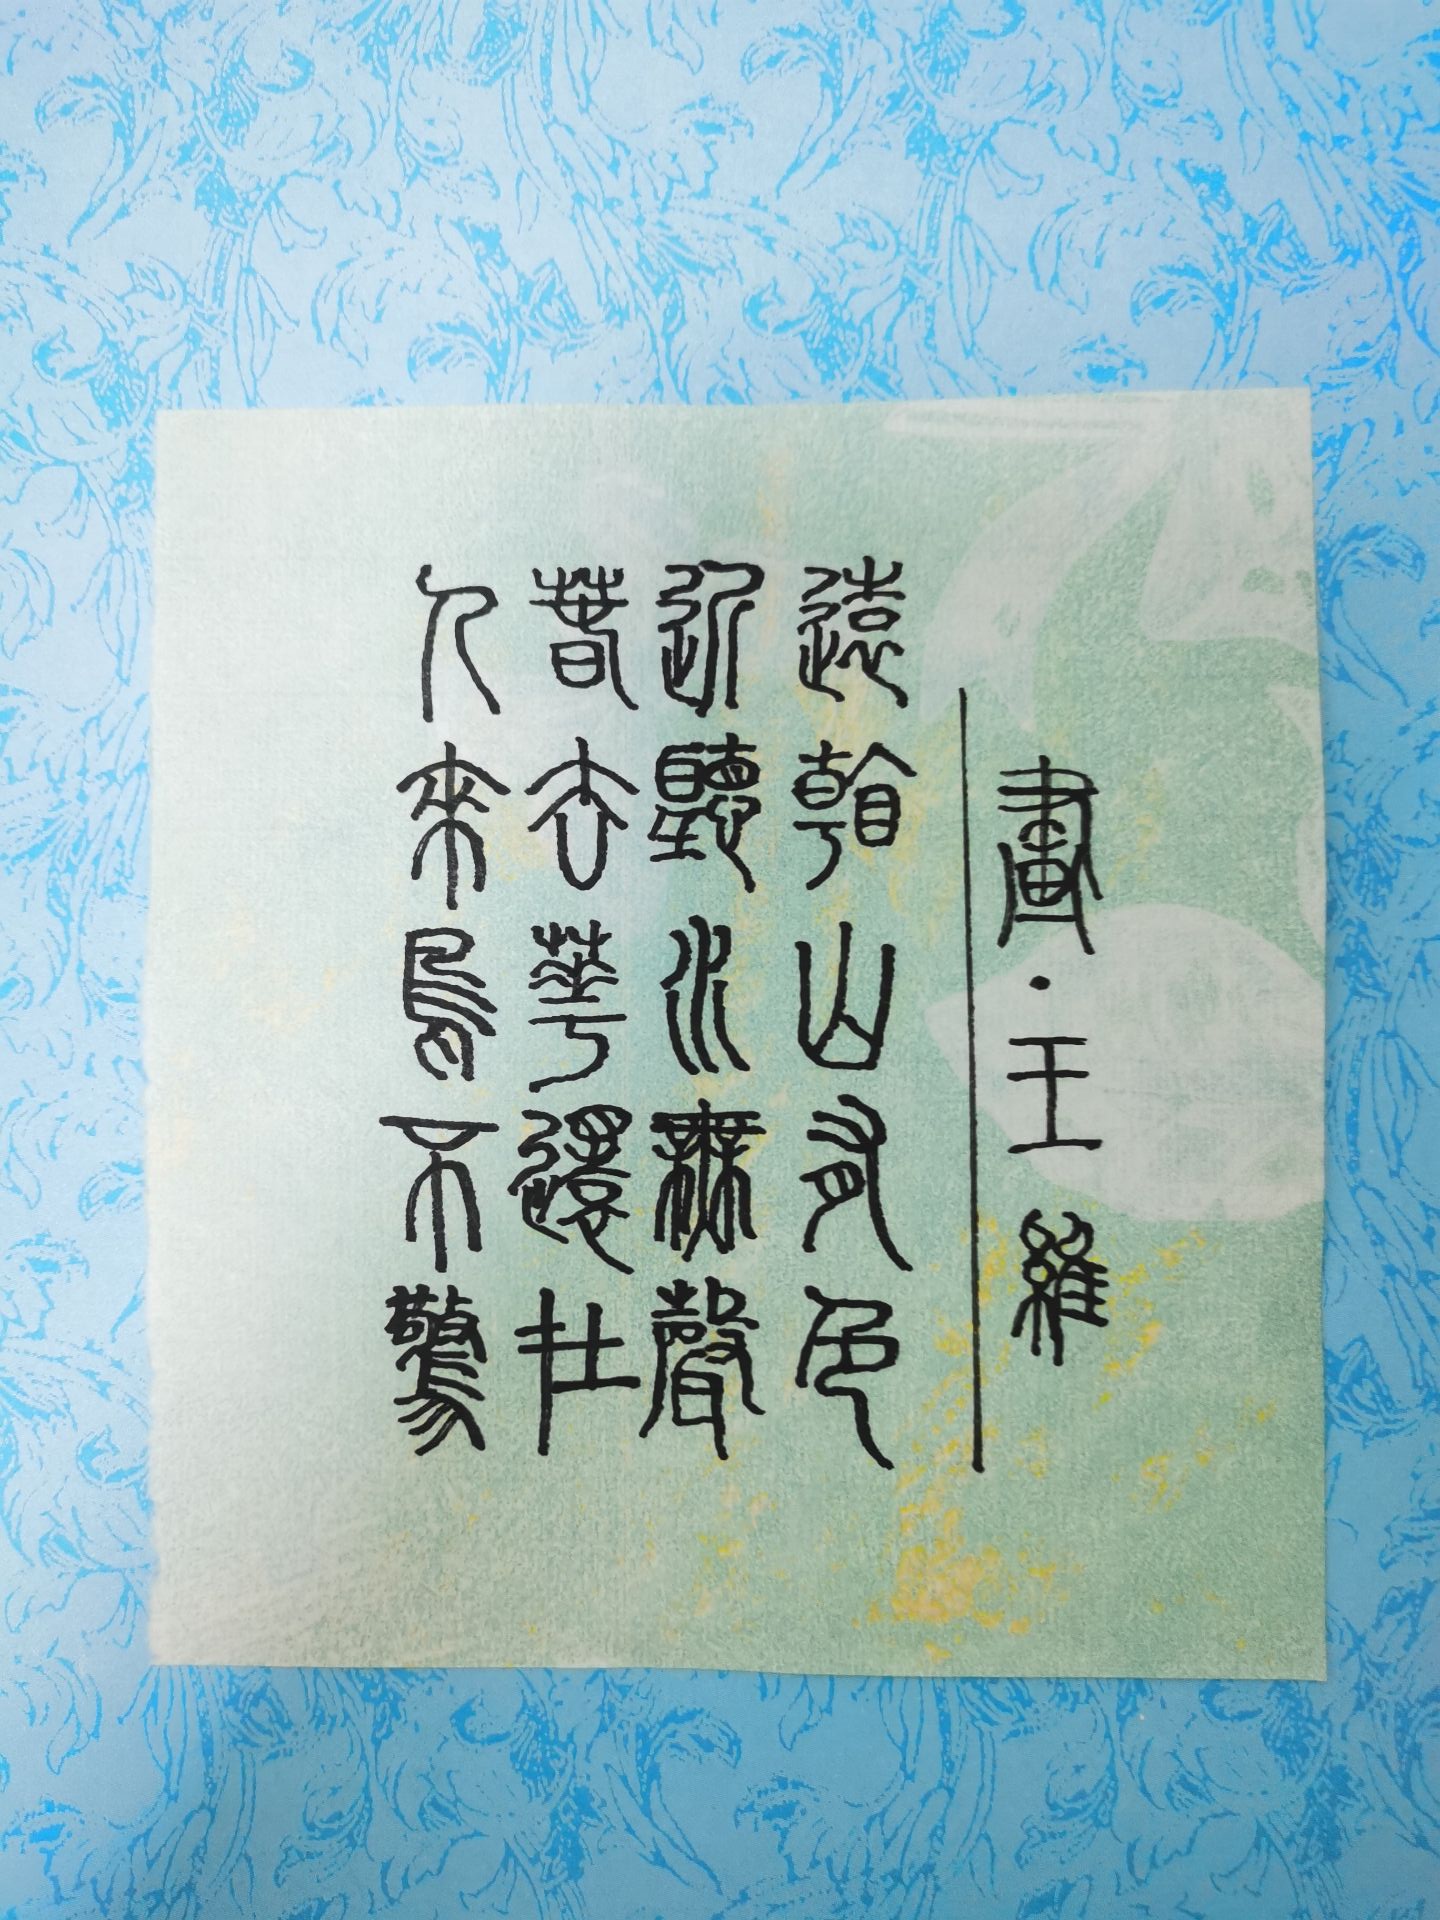 畫·王維
遠看山有色
近聽水無聲
春去華還在
人來鳥不驚